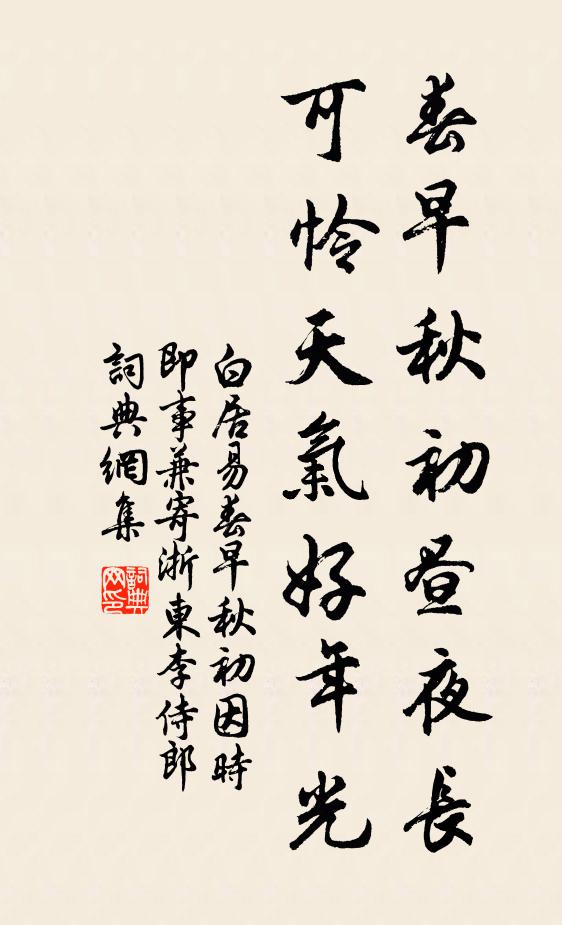 春早秋初昼夜長
可怜天氣好年光
白居易春早秋初因時
即事兼寄浙東李侍郎
詞典網集
詞典
网印